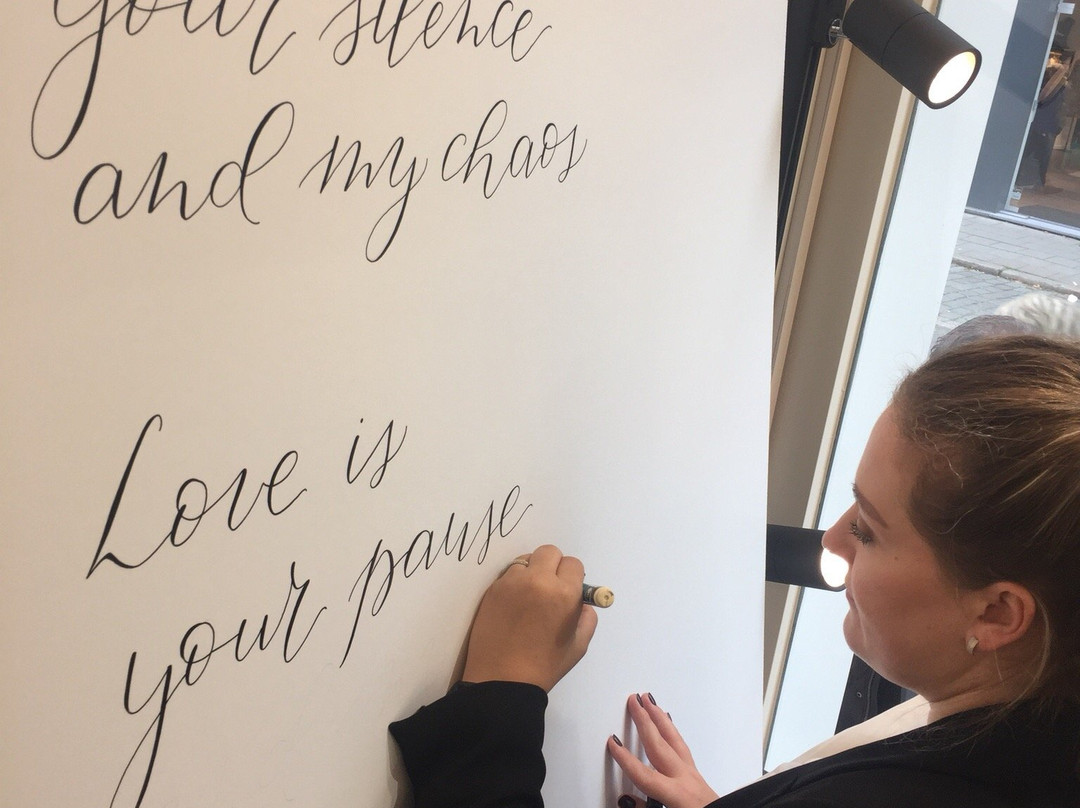 your silence
and my chaos
Love is
your pause